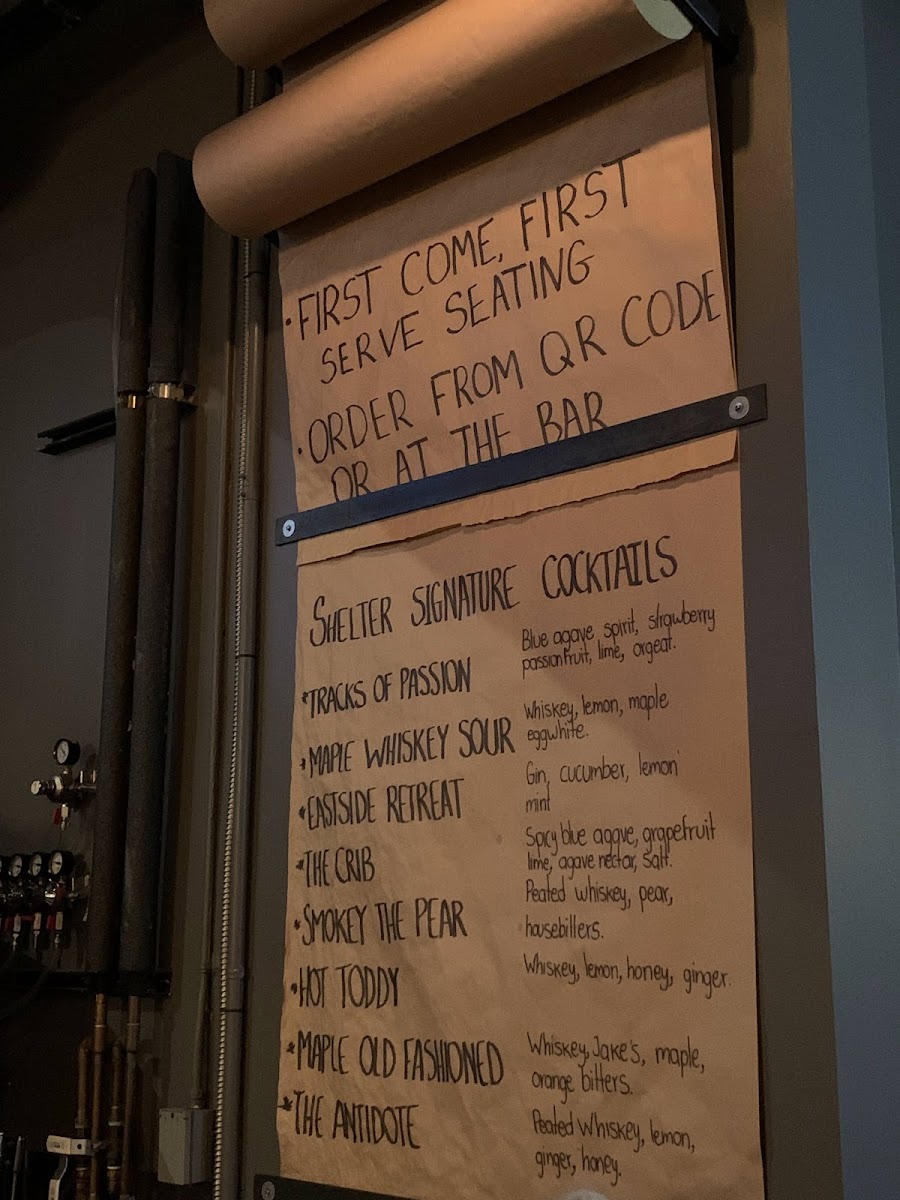 •FIRST COME, FIRST
SERVE SEATING
•ORDER FROM QR CODE
OR AT THE BAR
SHELTER SIGNATURE COCKTAILS
*TRACKS OF PASSION
Blue agave spirit, strawberry
passionfruit, lime, orgeat.
*MAPLE WHISKEY SOUR
Whiskey, lemon, maple
eggwhite.
*EASTSIDE RETREAT
Gin, cucumber, lemon
mint
*THE CRIB
Spicy blue agave, grapefruit
lime, agave nectar, salt.
*SMOKEY THE PEAR
Peated whiskey, pear,
housebitters.
*HOT TODDY
Whiskey, lemon, honey, ginger.
*MAPLE OLD FASHIONED
Whiskey, Jake's, maple,
orange bitters.
*THE ANTIDOTE
Peated Whiskey, lemon,
ginger, honey.